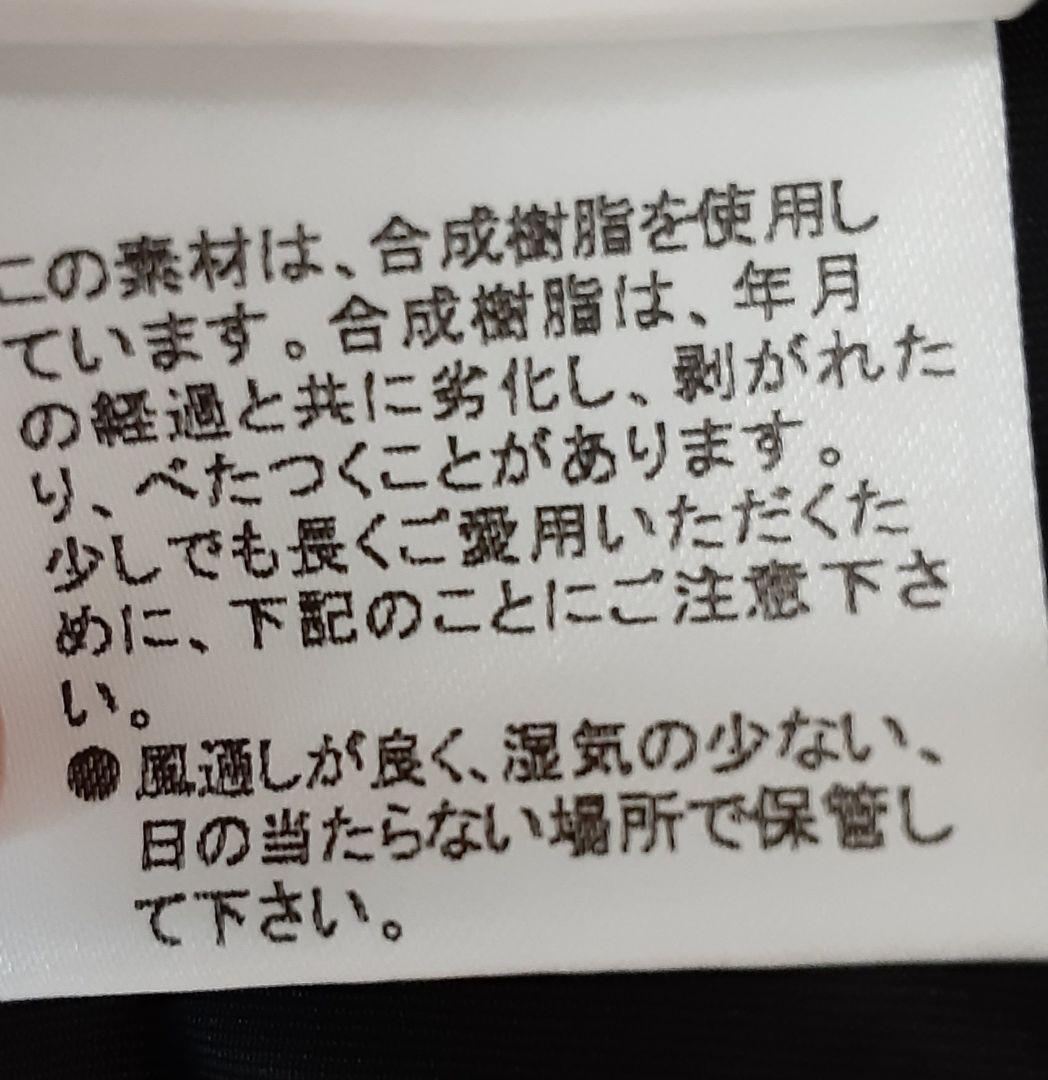 この素材は、合成樹脂を使用し
ています。合成樹脂は、年月
の経過と共に劣化し、剥がれた
り、べたつくことがあります。
少しでも長くご愛用いただくた
めに、下記のことにご注意下さ
い。
●風通しが良く、湿気の少ない、
日の当たらない場所で保管し
て下さい。